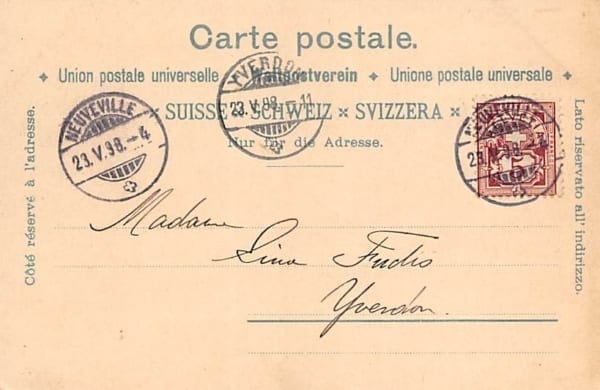 Carte postale.
✦ Union postale universelle ✦ Weltpostverein ✦ Unione postale universale ✦
× SUISSE × SCHWEIZ × SVIZZERA ×
Nur für die Adresse.
Côté réservé à l'adresse.
Lato riservato all' indirizzo.
NEUVEVILLE
23.V.98.-4
YVERDON
23.V.98.-11
NEUVEVILLE
23.V.98.-4
Madame
Lina
Yverdon.